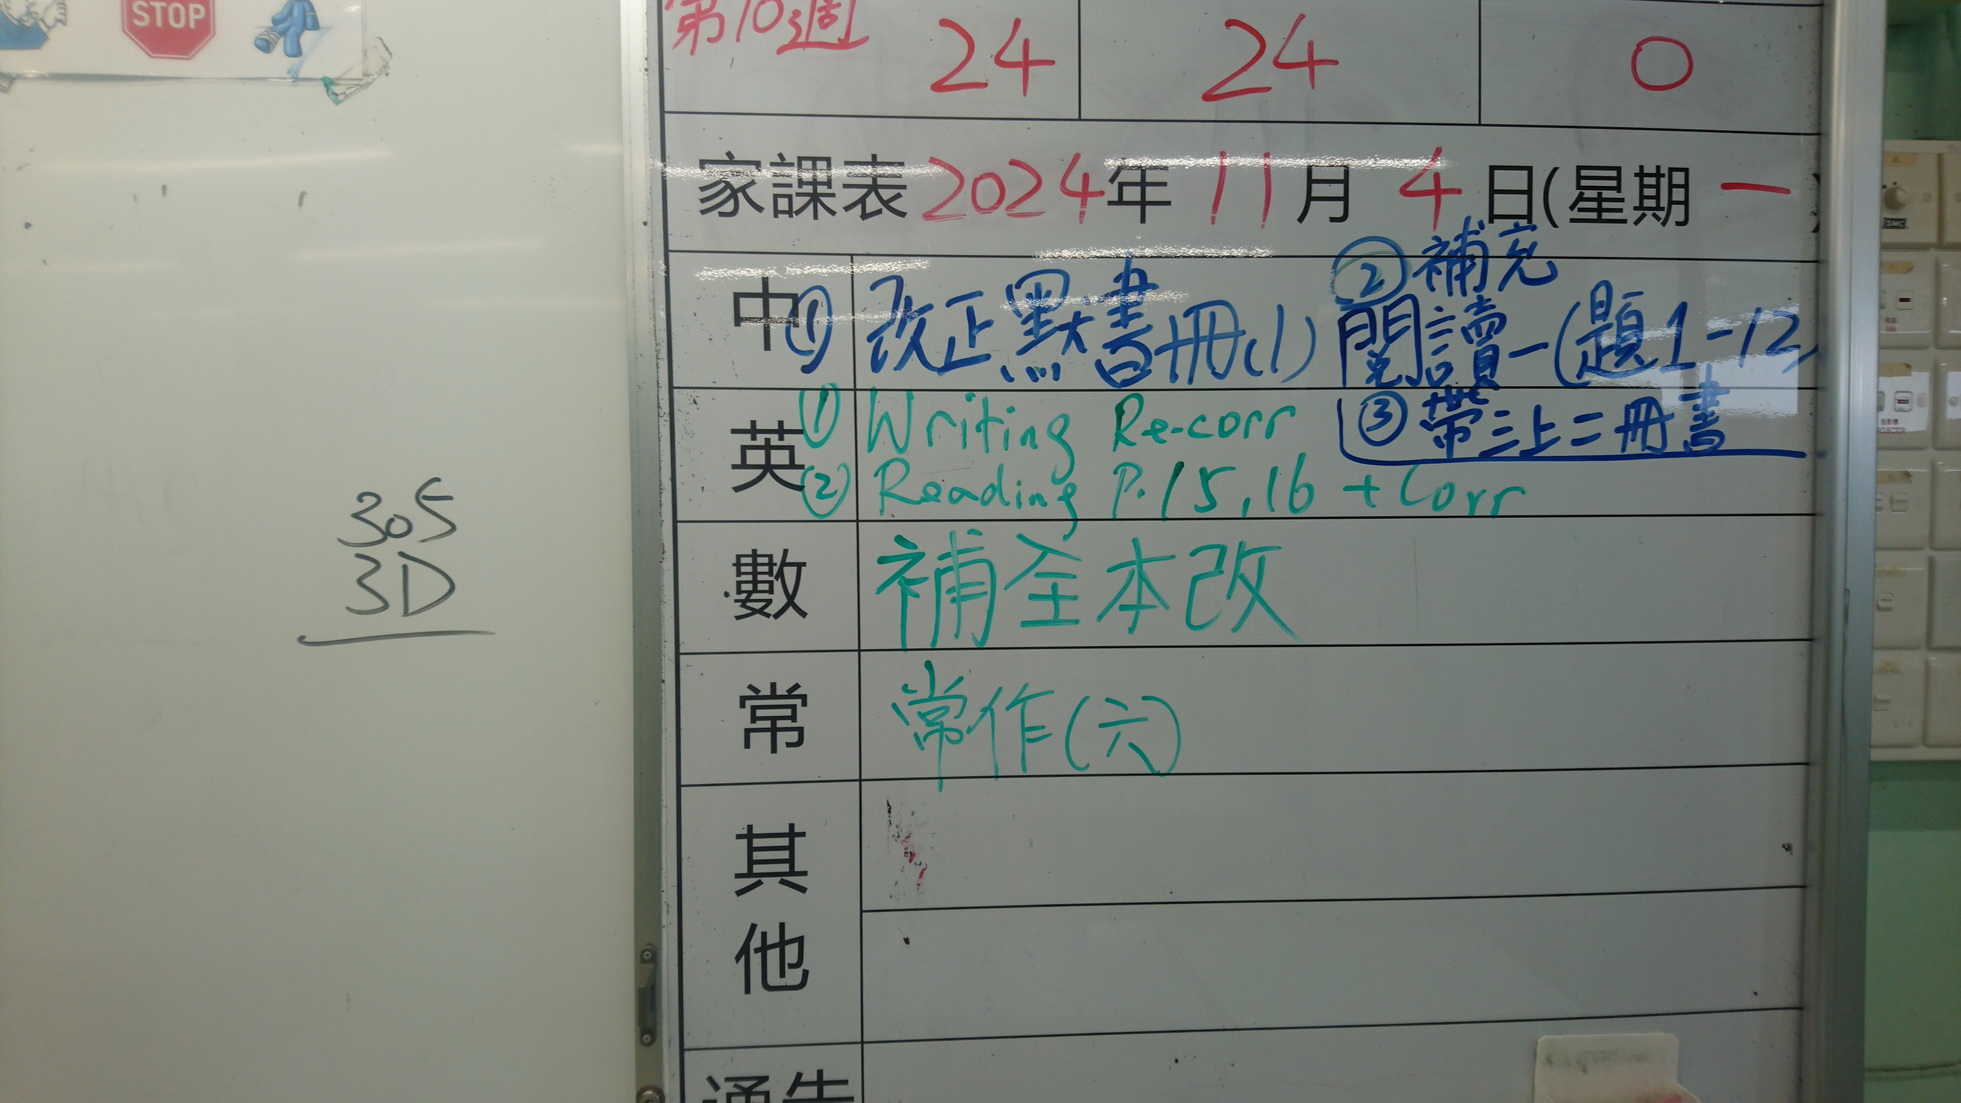 STOP
第10週 24 24 0
家課表 2024年 11月 4日(星期一)
中 ① 改正默書冊(1) ② 補充
閱讀一(題1-12)
③ 帶三上二冊書
英 ① Writing Re-corr
② Reading P.15,16 + Corr
數 補全本改
常 常作(六)
其他
通告
305
3D